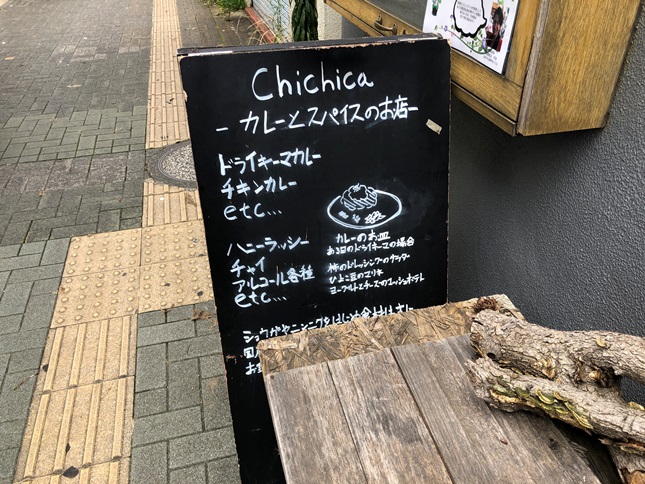 Chichica
- カレーとスパイスのお店 -
ドライキーマカレー
チキンカレー
etc...
カレーのお皿
ある日のドライキーマの場合
柿のドレッシングのサラダ
ひよこ豆のマリネ
ヨーグルトとチーズのマッシュポテト
ハニーラッシー
チャイ
アルコール各種
etc...
ショウガやニンニクをはじめ食材は